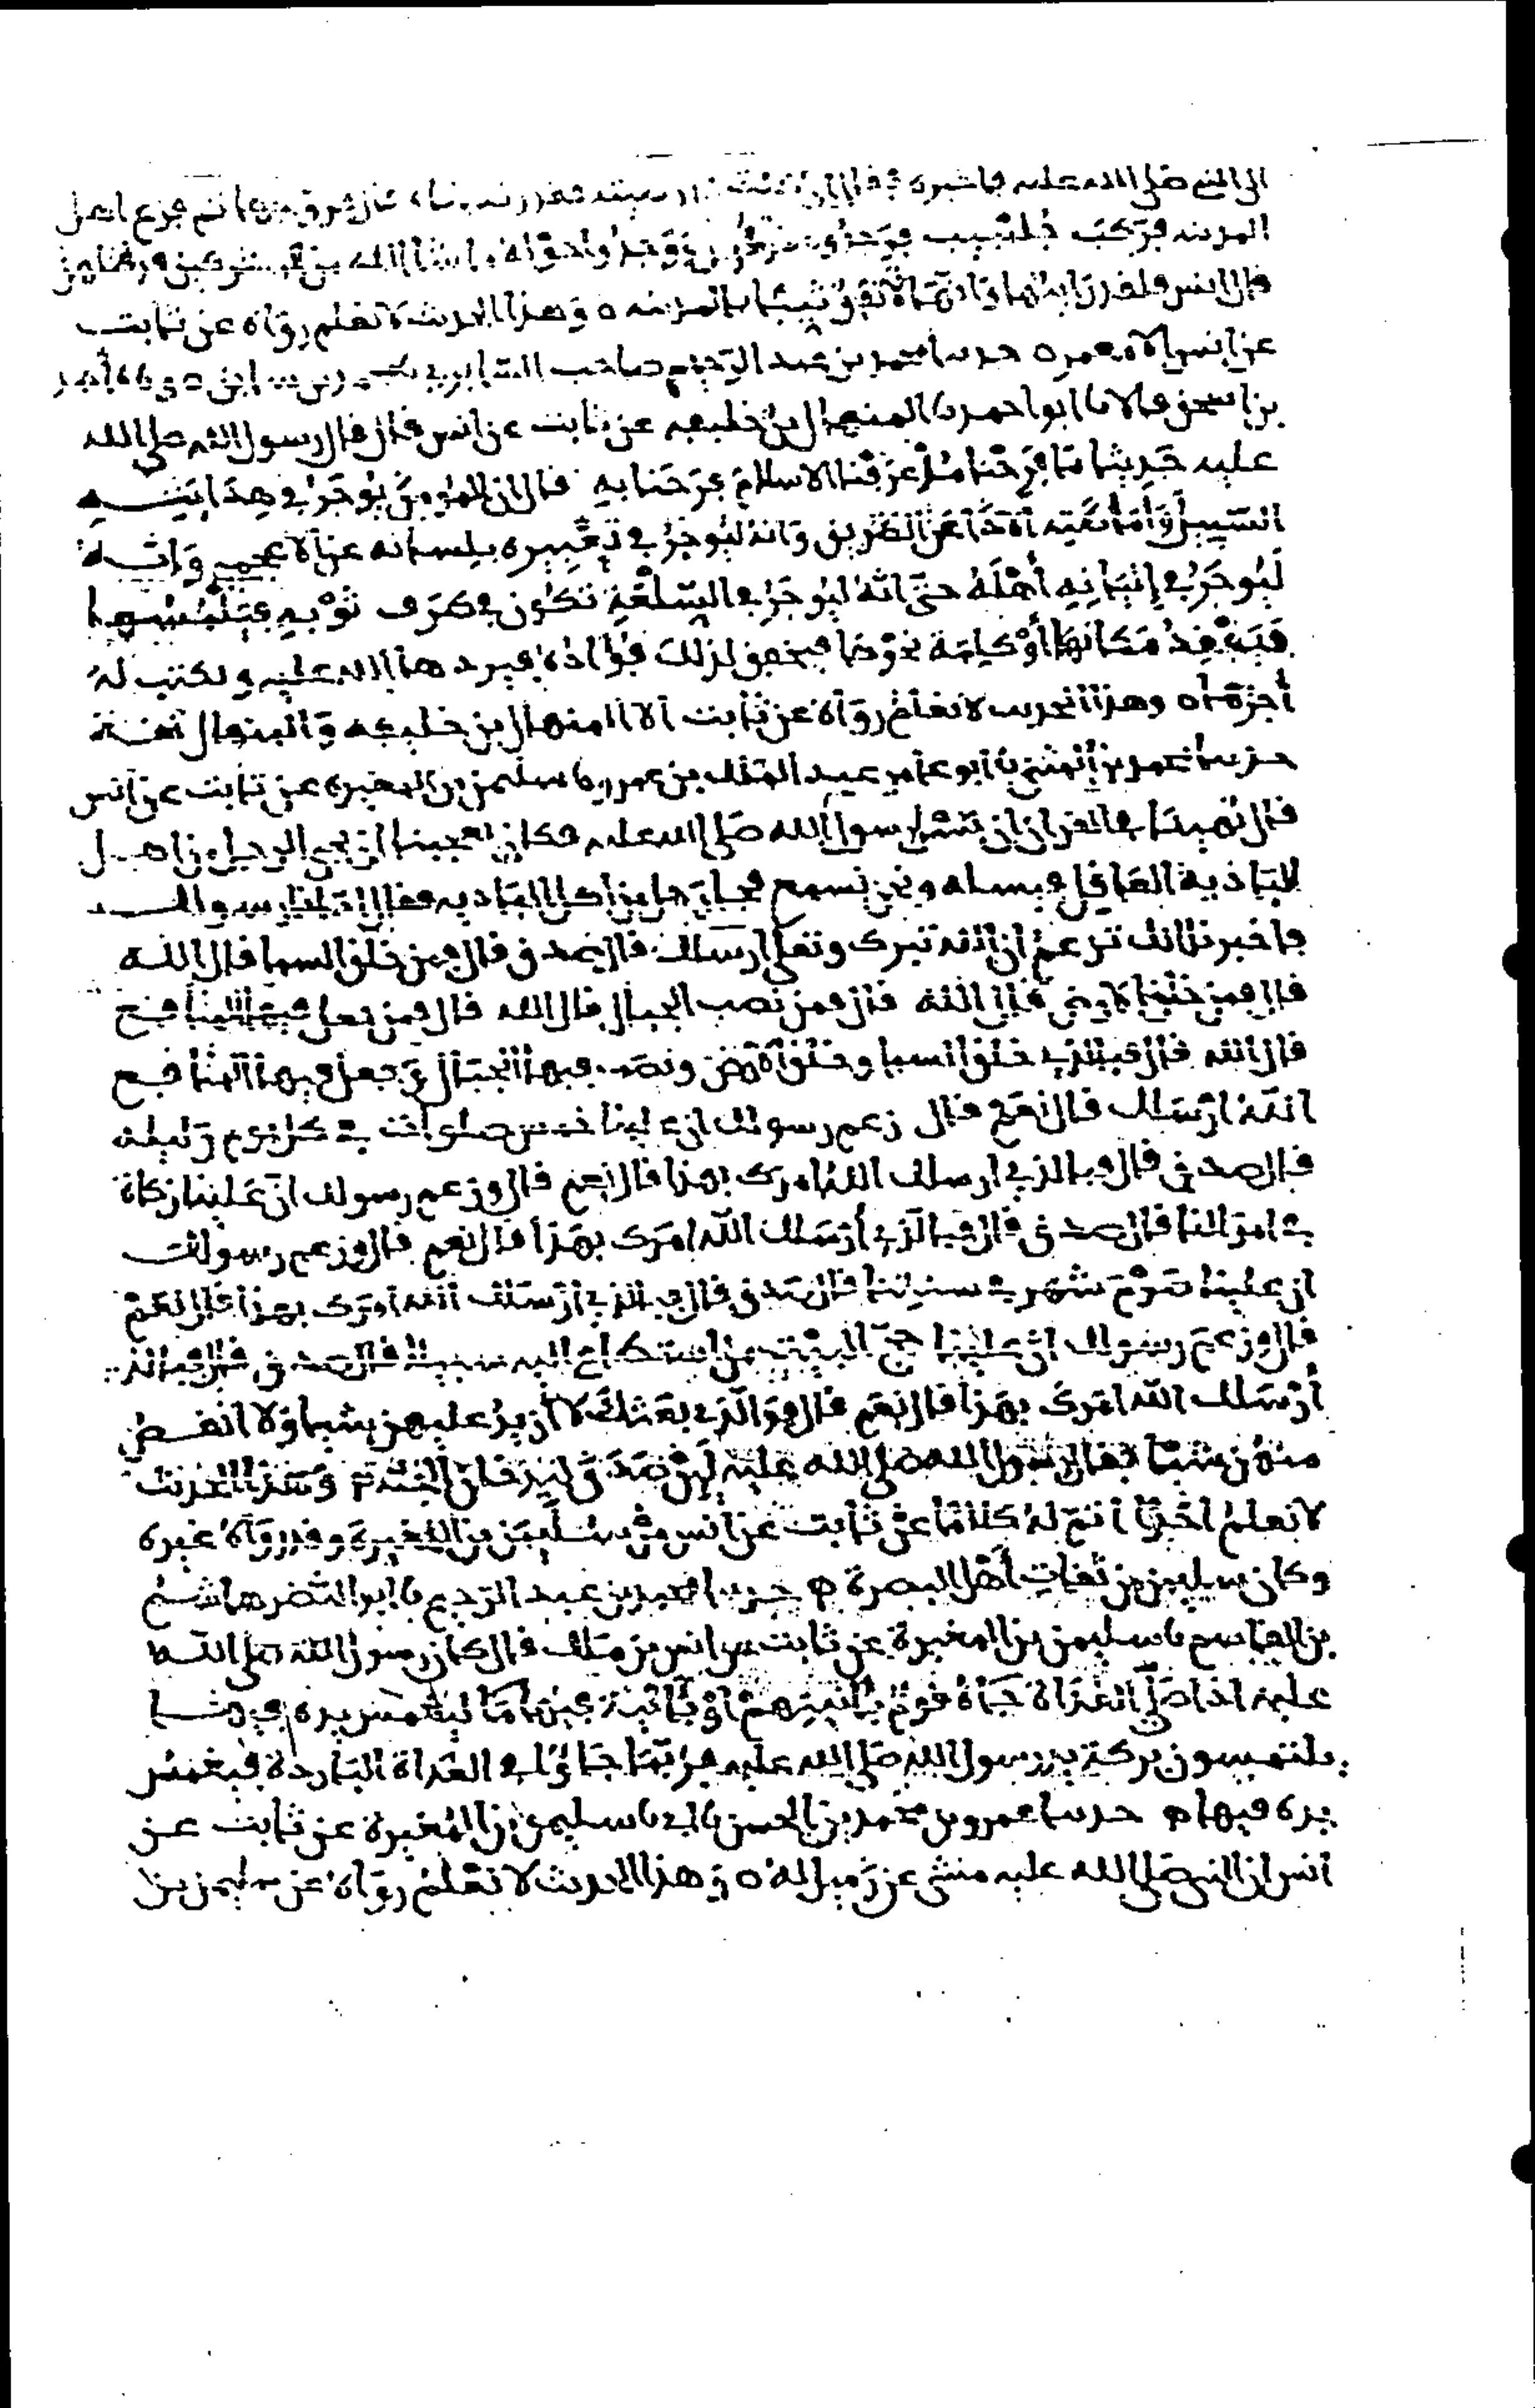 الى النبي صلى الله عليه فاخبره فقال ان كنت قد رضيته فقد رضيناه قال فزوجها ثم فزع اهل
المدينه فركب جليبيب فوجدوه قد قتل ووجدوا حوله ناسا من المشركين قد قتلهم
قال انس فلقد رايتها وانها لانفق ثيب بالمدينه ٥ وهذا الحديث لا نعلم رواه عن ثابت
عن انس الا معمر ٥ حدثنا محمد بن عبد الرحيم صاحب السابري
بن اسحق قالا نا ابو احمد نا المنهال بن خليفه عن ثابت عن انس قال قال رسول الله صلى الله
عليه حديثا ما فرحنا منذ عرفنا الاسلام فرحنا به قال ان المؤمن يؤجر في هدايته
السبيل واماطته الاذى عن الطريق وانه ليؤجر في تعبيره بلسانه عن الاعجمي وانه
ليؤجر في اتيانه اهله حتى انه ليؤجر في السلعة تكون في طرف ثوبه فيلمسها
فيفقد مكانها او كلمة نحوها فيخفق لذلك فؤاده فيردها الله عليه ويكتب له
اجرها ٥ وهذا الحديث لا نعلم رواه عن ثابت الا المنهال بن خليفه والمنهال ثقة
حدثنا محمد بن المثنى نا ابو عامر عبد الملك بن عمرو نا سليمن بن المغيره عن ثابت عن انس
قال نهينا في القران ان نسئل رسول الله صلى الله عليه فكان يعجبنا ان يجي الرجل من اهل
البادية العاقل فيساله ونحن نسمع فجا رجل من اهل الباديه فقال اتانا رسولك
فاخبرنا انك تزعم ان الله تبرك وتعلى ارسلك قال صدق قال فمن خلق السما قال الله
قال فمن خلق الارض قال الله قال فمن نصب الجبال قال الله قال فمن جعل فيها المنافع
قال الله قال فبالذي خلق السما وخلق الارض ونصب فيها الجبال وجعل فيها المنافع
الله ارسلك قال نعم قال زعم رسولك ان علينا خمس صلوات في كل يوم وليله
قال صدق قال فبالذي ارسلك الله امرك بهذا قال نعم قال وزعم رسولك ان علينا زكاة
في اموالنا قال صدق قال فبالذي ارسلك الله امرك بهذا قال نعم قال وزعم رسولك
ان علينا صوم شهر في سنتنا قال صدق قال فبالذي ارسلك الله امرك بهذا قال نعم
قال وزعم رسولك ان علينا حج البيت من استطاع اليه سبيلا قال صدق قال فبالذي
ارسلك الله امرك بهذا قال نعم قال فوالذي بعثك لا ازيد عليهن شيا ولا انقص
منهن شيا فقال رسول الله صلى الله عليه لئن صدق ليدخلن الجنة وهذا الحديث
لا نعلم احدا اتم له كلاما عن ثابت عن انس من سليمن بن المغيرة وقد رواه غيره
وكان سليمن من ثقات اهل البصرة ٥ حدثنا محمد بن عبد الرحيم نا ابو النضر هاشم
بن القاسم نا سليمن بن المغيرة عن ثابت عن انس بن ملك قال كان رسول الله صلى الله
عليه اذا صلى الغداة جاه قوم بانيتهم او بانية فيها ما ليغمس يده فيها
يلتمسون بركة يد رسول الله صلى الله عليه فربما جاؤا في الغداة الباردة فيغمس
يده فيها ٥ حدثنا عمرو بن محمد بن الحسن نا ابي نا سليمن بن المغيرة عن ثابت عن
انس ان النبي صلى الله عليه مشى عن زميل له ٥ وهذا الحديث لا نعلم رواه عن سليمن بن